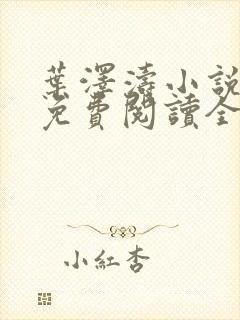 葉澤濤小說
免費閱讀全
小紅杏